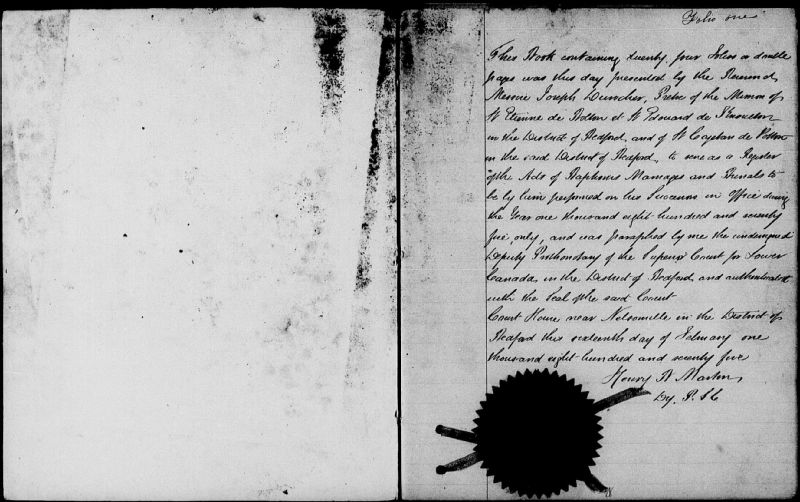 Folio one
This Book containing twenty four folios or double
pages was this day presented by the Reverend
Messire Joseph Prêtre of the Mission of
St Etienne de Bolton et St Edouard de Knowlton
in the District of Bedford, and of St Cajetan de Potton
in the said District of Bedford, to serve as a Register
of the Acts of Baptisms Marriages and Burials to
be by him performed or his Successors in Office during
the Year one thousand eight hundred and seventy
five only, and was paraphed by me the undersigned
Deputy Prothonotary of the Superior Court for Lower
Canada, in the District of Bedford and authenticated
with the Seal of the said Court
Court House near Nelsonville in the District of
Bedford this sixteenth day of February one
thousand eight hundred and seventy five
Henry Marton
Dy. P. S C